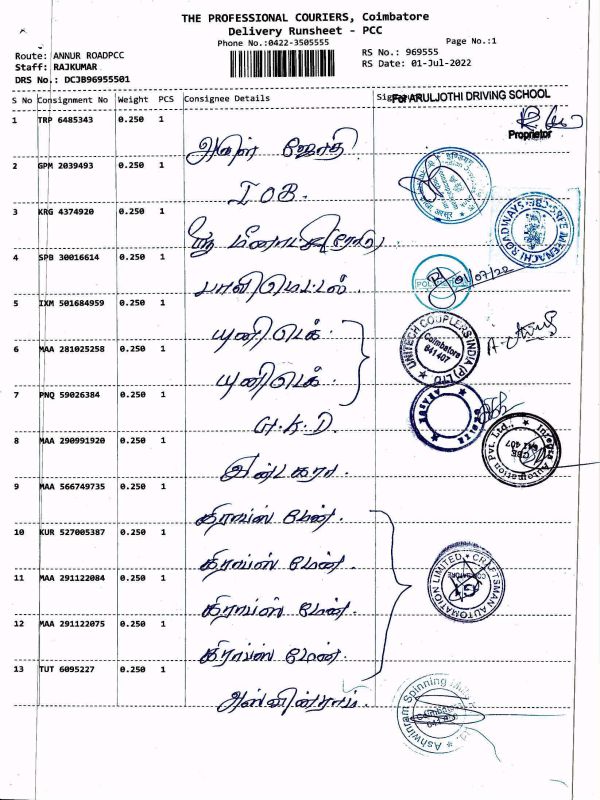 THE PROFESSIONAL COURIERS, Coimbatore
Delivery Runsheet - PCC
Phone No.:0422-3505555
Page No.:1
Route: ANNUR ROADPCC
RS No.: 969555
Staff: RAJKUMAR
RS Date: 01-Jul-2022
DRS No.: DCJB96955501
S No Consignment No Weight PCS Consignee Details
For ARULJOTHI DRIVING SCHOOL
1 TRP 6485343 0.250 1
Proprietor
அருள் ஜோதி
2 GPM 2039493 0.250 1
I.O.B.
3 KRG 4374920 0.250 1
ஸ்ரீ மீனாட்சி
SREE MEENACHI ROADWAYS
4 SPB 30016614 0.250 1
01/07/22
பாலிமெட்டல்
5 IXM 501684959 0.250 1
யுனிடெக்
UNITECH COUPLERS INDIA (P) LTD
Coimbatore
641407
6 MAA 281025258 0.250 1
யுனிடெக்
7 PNQ 59026384 0.250 1
G.K.D
8 MAA 290991920 0.250 1
இன்டகரா
Integra Automation Pvt. Ltd.,
CBE
641 407
9 MAA 566749735 0.250 1
கிராப்ஸ் மேன்.
10 KUR 527005387 0.250 1
கிராப்ஸ் மேன்.
11 MAA 291122084 0.250 1
கிராப்ஸ் மேன்.
CRAFTSMAN AUTOMATION LIMITED
COIMBATORE
12 MAA 291122075 0.250 1
கிராப்ஸ் மேன்.
13 TUT 6095227 0.250 1
அஸ்வின்ராம்.
Ashwinram Spinning